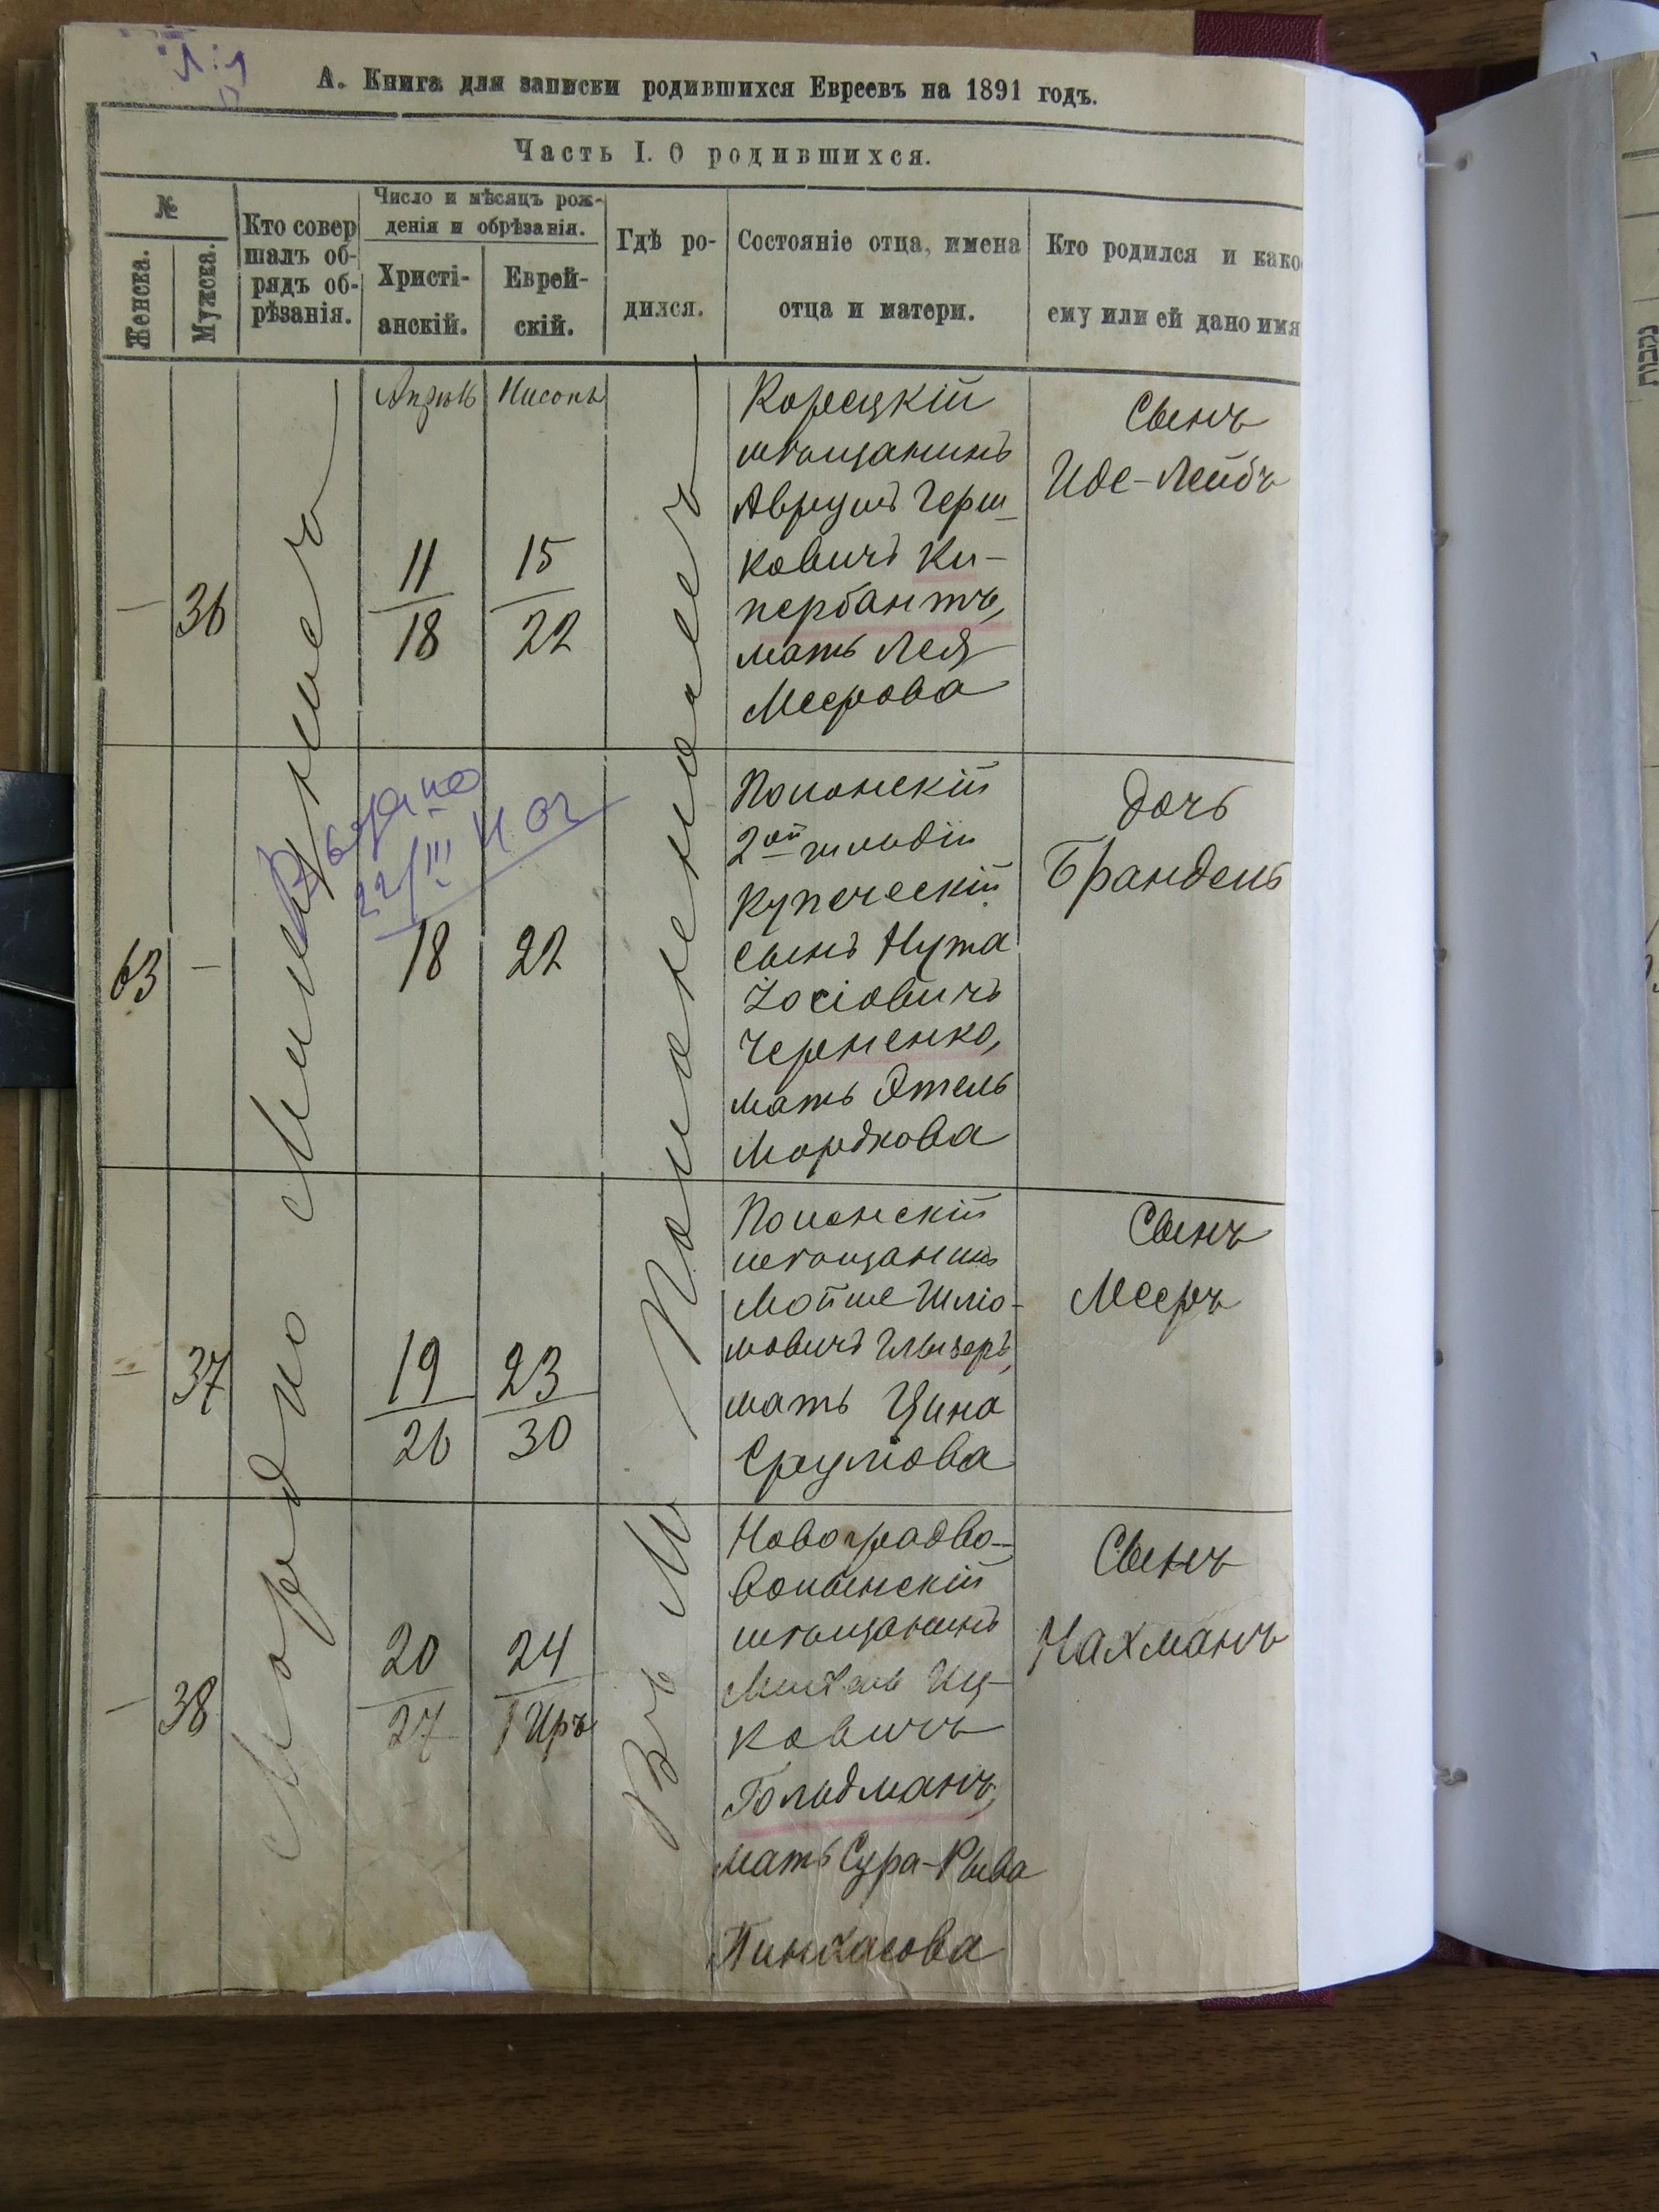 А. Книга для записки родившихся Евреевъ на 1891 годъ.
Часть I. О родившихся.
№
Женска.
Мужска.
Кто совер
шалъ об-
рядъ об-
рѣзанія.
Число и мѣсяцъ рож-
денія и обрѣзанія.
Христі-
анскій.
Еврей-
скій.
Гдѣ ро-
дился.
Состояніе отца, имена
отца и матери.
Кто родился и како
ему или ей дано имя
Мордко
Въ М Полонномъ
Апрѣль
Нисонъ
—
36
11
18
15
22
Корецкій
мѣщанинъ
Аврумъ Герш-
ковичъ Ки-
пербантъ,
мать Лея
Меерова
Сынъ
Иде-Лейбъ
Выдано
22/III
63
—
18
22
Полонскій
2ой гильдіи
купеческій
сынъ Нута
Іосіовичъ
Черненко,
мать Этель
Мордкова
Дочь
Брандель
—
37
19
26
23
30
Полонскій
мѣщанинъ
Мойше Шліо-
мовичъ Глизеръ,
мать Цина
Срулiова
Сынъ
Мееръ
—
38
20
27
24
1 Иръ
Новоградво-
волынскій
мѣщанинъ
Михель Иц-
ковичъ
Гольдманъ,
мать Сура-Рыва
Пинхасова
Сынъ
Нахманъ